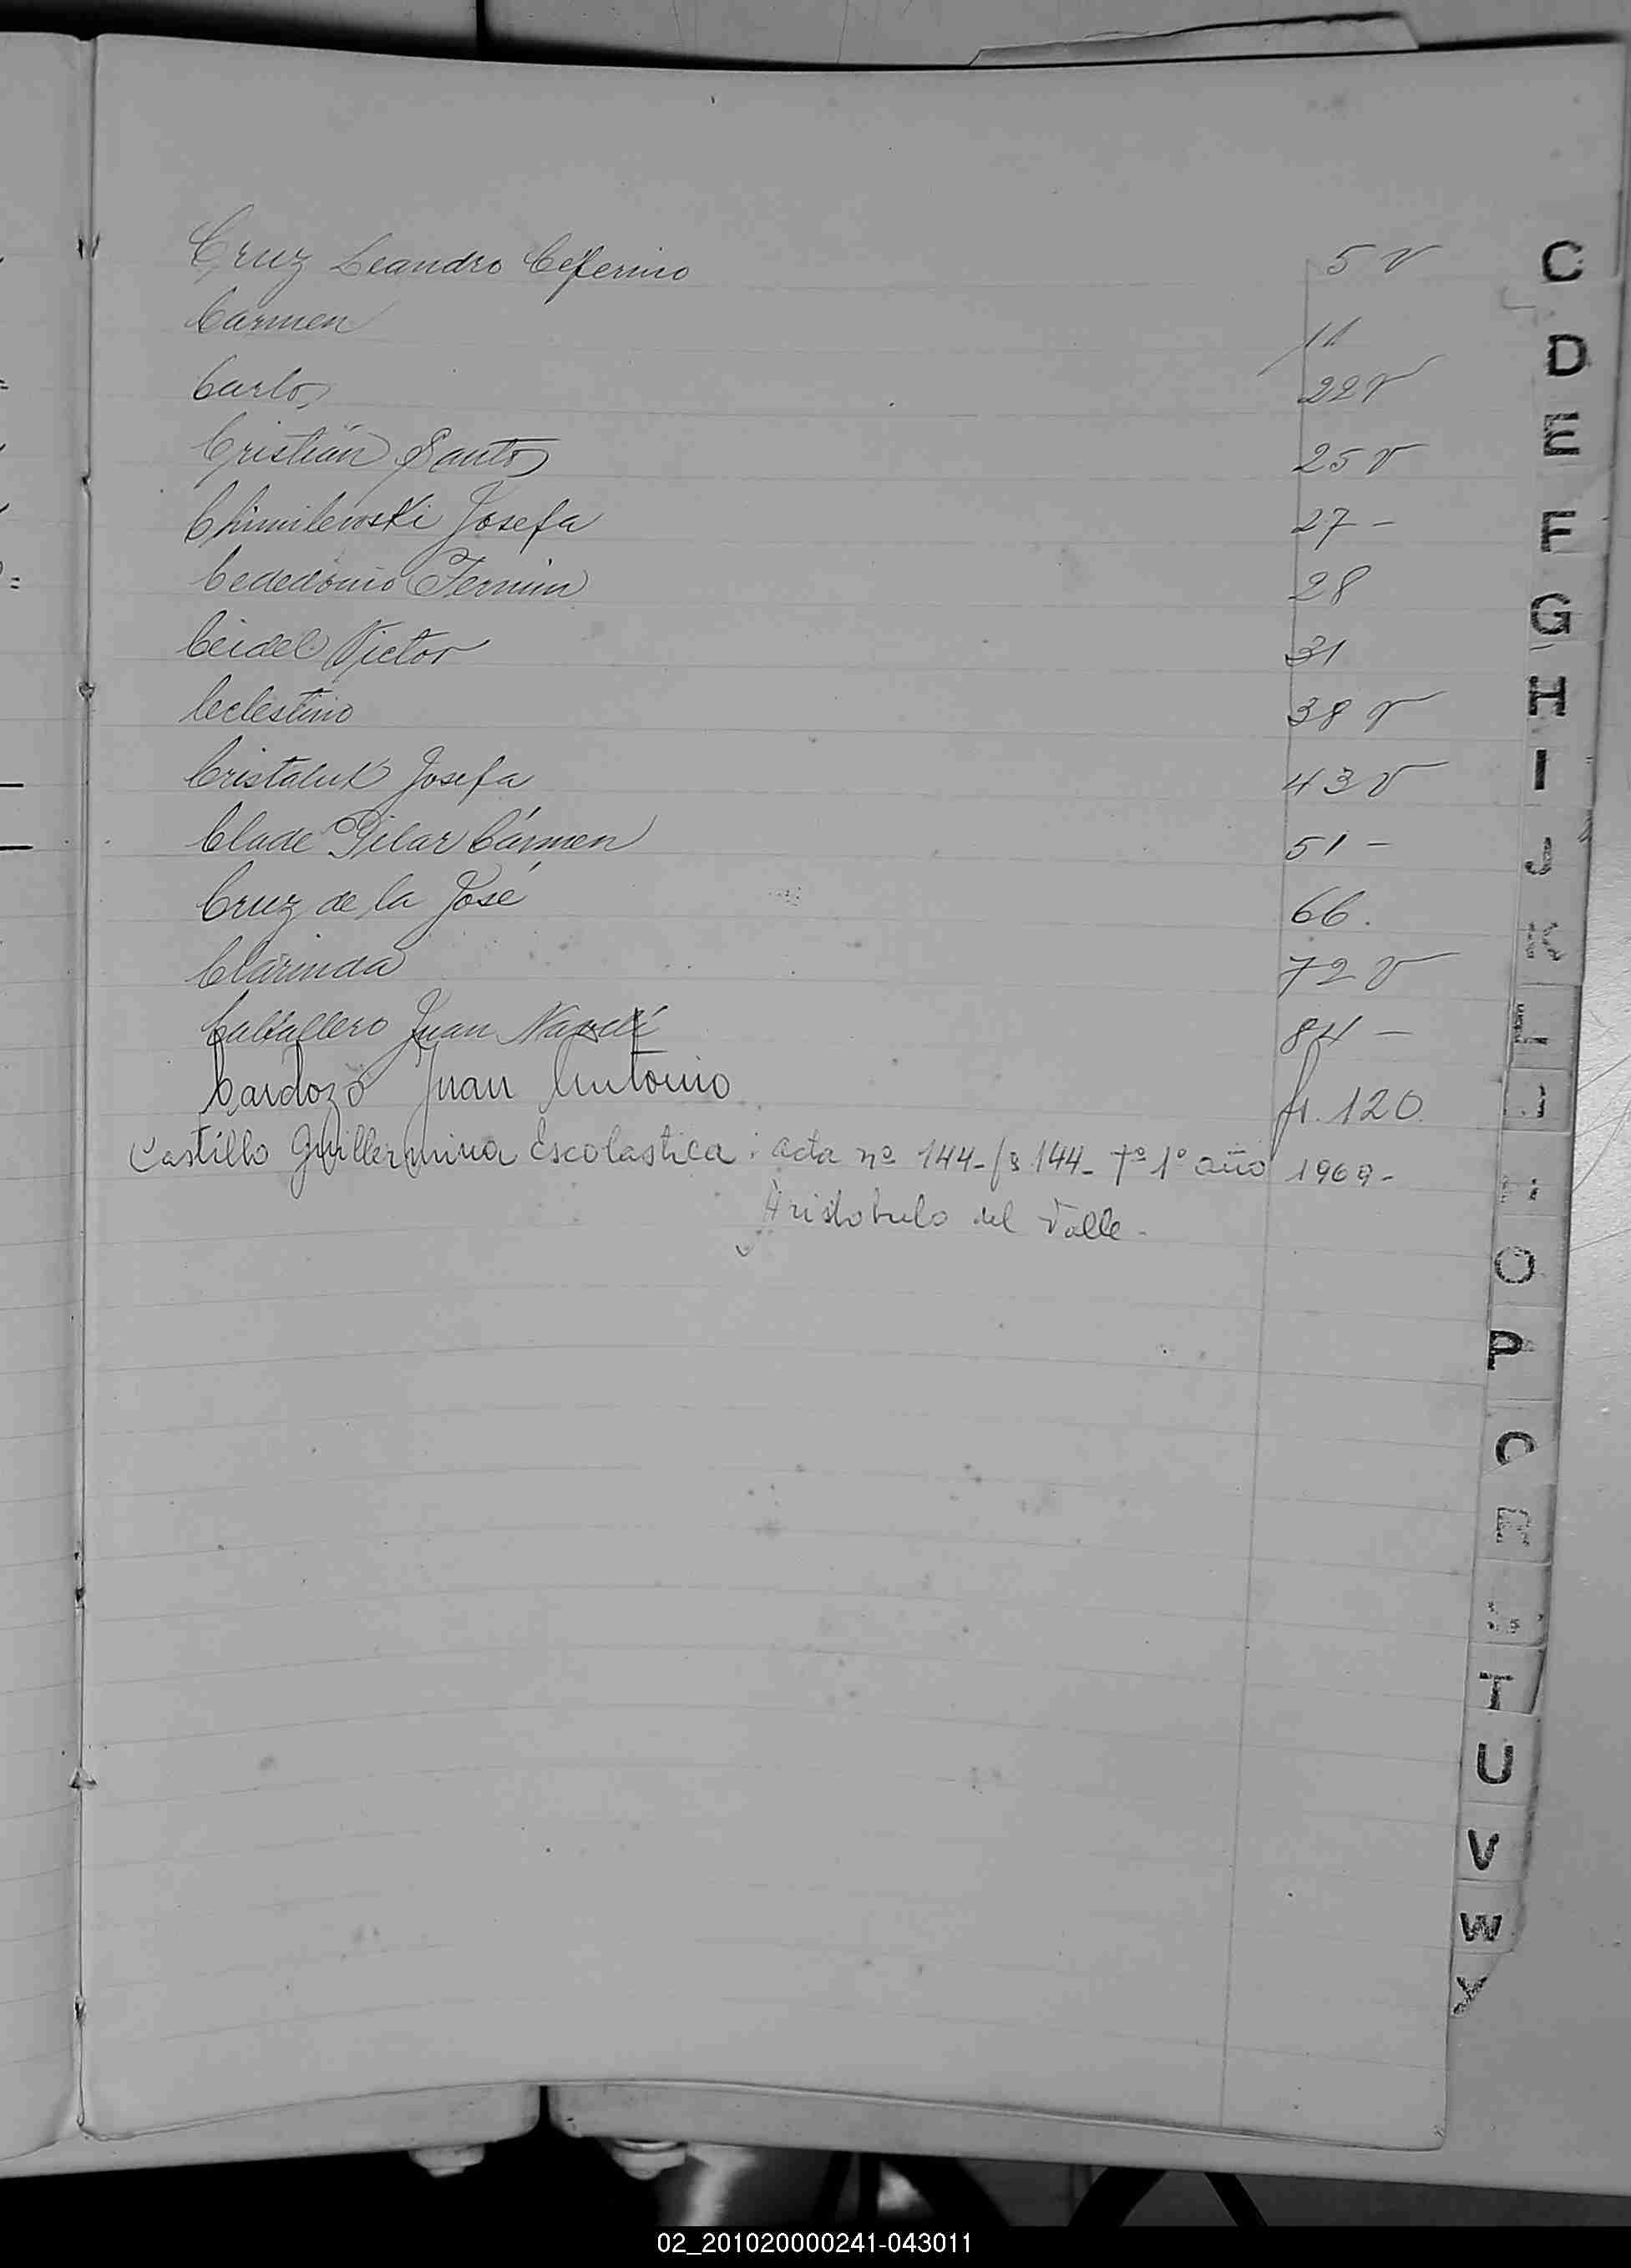 Cruz Leandro Ceferino 5 v
C
Carmen 11
D
Carlos 22 v
Cristián Santos 25 v
E
Chimilewski Josefa 27 -
F
Cededonio Fermin 28
G
Ceidel Victor 31
Ceclestino 38 v
H
Cristaluk Josefa 43 v
I
Clade Pilar Cármen 51 -
J
Cruz de la José 66.
K
Clarinda 72 v
Caballero Juan 84 -
Cardozo Juan Antonio fs. 120
Castillo Guillermina Escolastica : acta nº 144- fs 144- Tº 1º año 1969-
Aristobulo del Valle -
O
P
R
T
U
V
W
Y
02_201020000241-043011